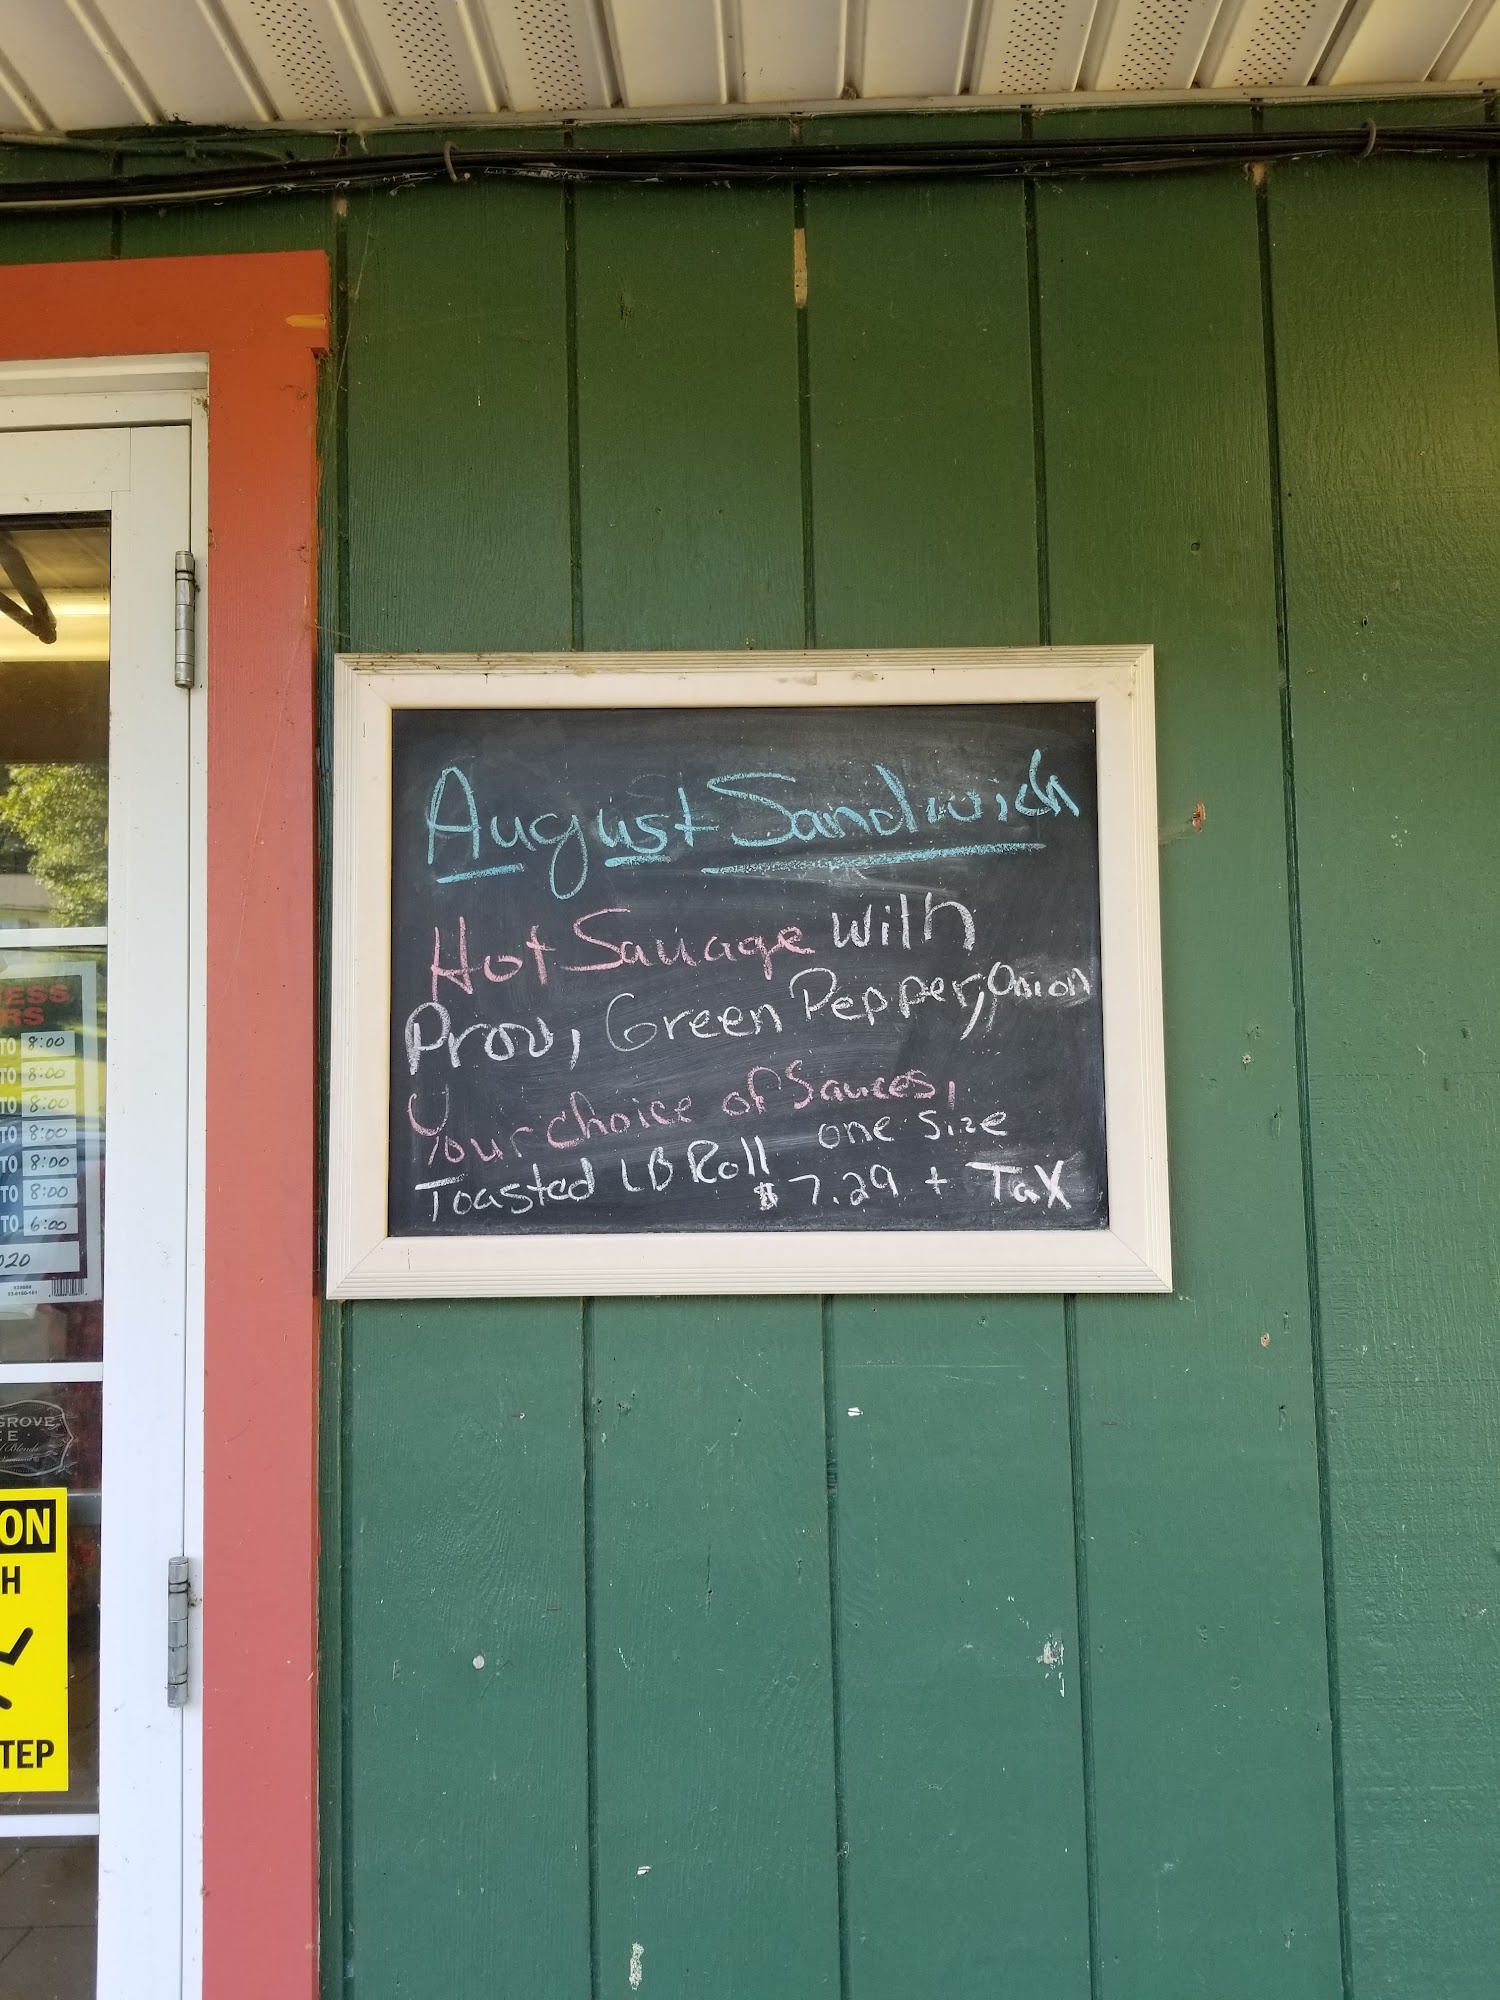 August Sandwich
Hot Sauage with
Prov, Green Pepper, Onion
Your choice of Sauces,
Toasted LB Roll one size
$7.29 + Tax
ESS
RS
TO 8:00
TO 8:00
TO 8:00
TO 8:00
TO 8:00
TO 8:00
TO 6:00
020
GROVE
EE
Blends
ON
H
TEP